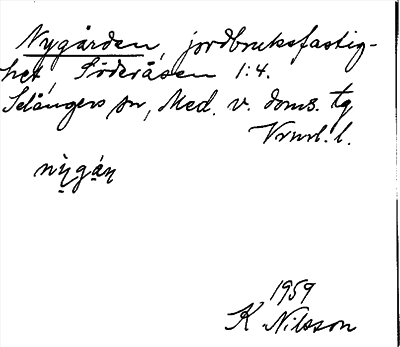 Nygården, jordbruksfastig-
het, Söderåsen 1:4.
Selångers sn, Med. v. doms. tg
Vrnrl. l.
nỳgáṇ
1959
K Nilsson